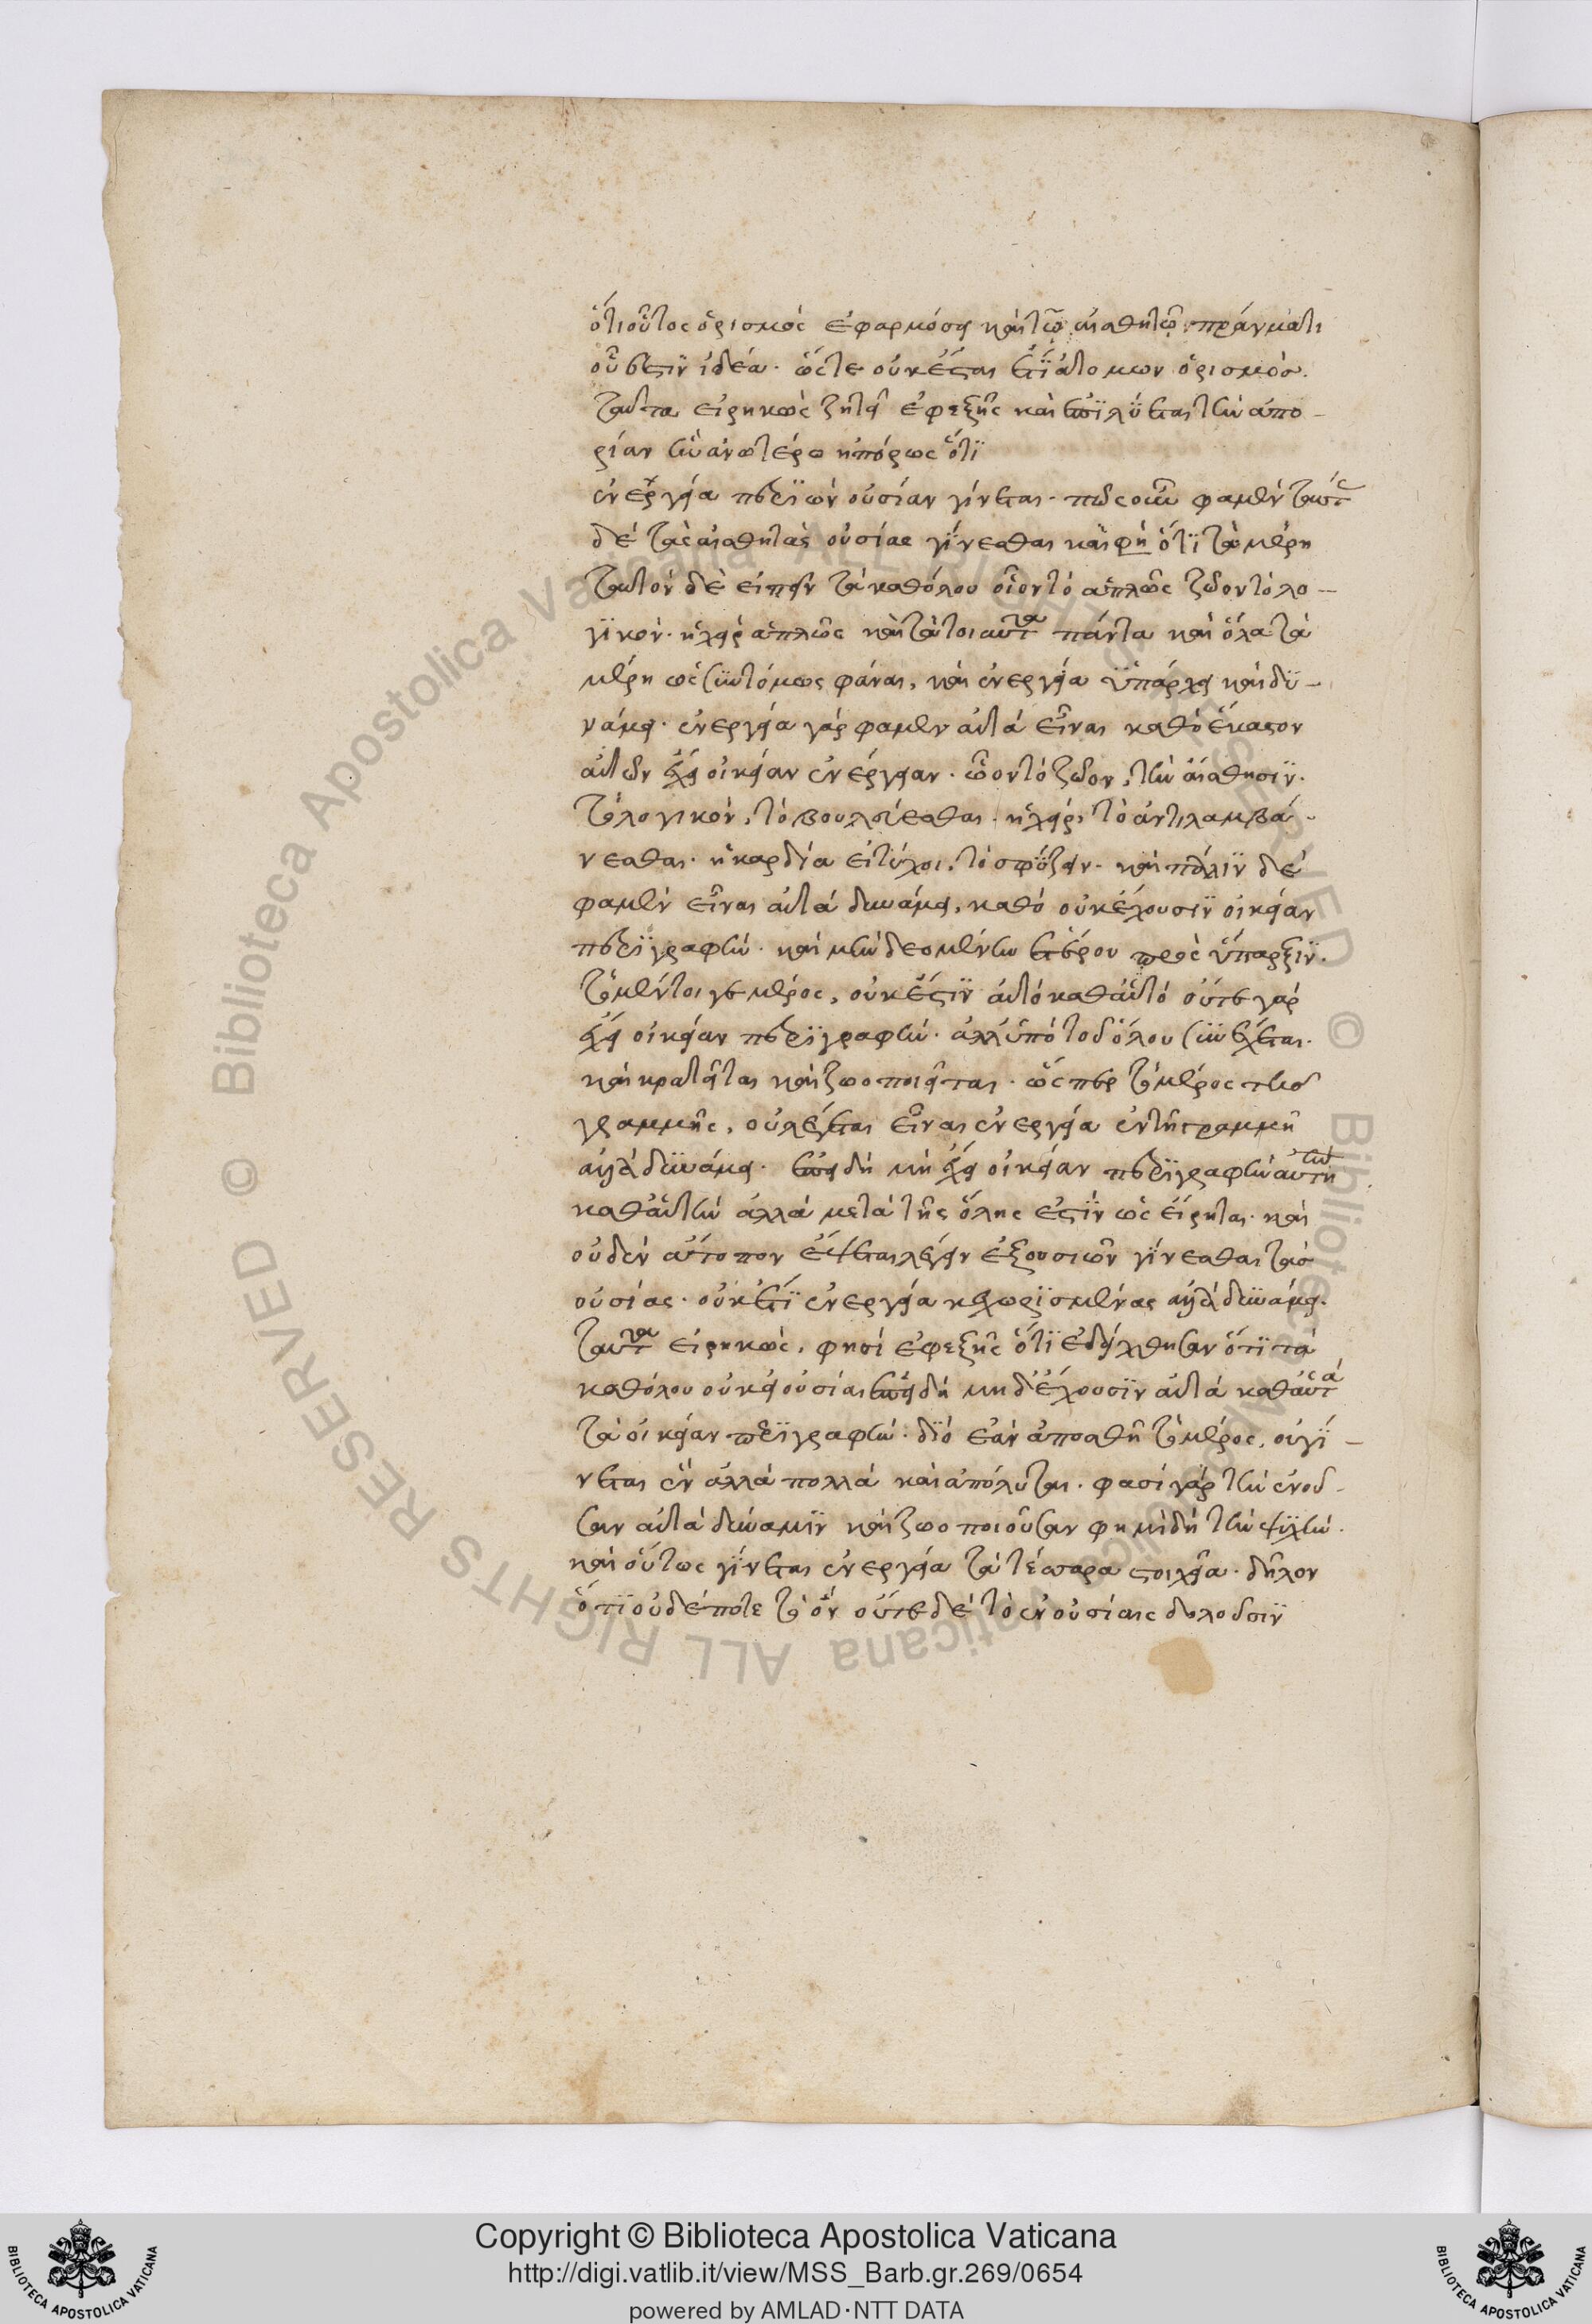 ὅτι οὗτος ὁρισμὸς ἐφαρμόσει καὶ τῷ αἰσθητῷ πράγματι
οὗ ἐστιν ἰδέα. ὥστε οὐκ ἔσται ἔτι ἀτόμων ὁρισμός.
ταῦτα εἰρηκὼς ζητεῖ ἐφεξῆς καὶ ἐπιλύεται τὴν ἀπο-
ρίαν ἣν ἀνωτέρω ἠπόρως ὅτι
ἐνεργείᾳ περὶ ὧν οὐσίαν γίνεται. πῶς οὖν φαμὲν ταύτας
δὲ τὰς αἰσθητὰς οὐσίας γίνεσθαι καὶ φὴ ὅτι τὰ μέρη
ταυτὸν δὲ εἰπεῖν τὰ καθόλου οἷον τὸ ἁπλῶς ζῶον τὸ λο-
γικόν. ἡ χεὶρ ἁπλῶς καὶ τὰ τοιαῦτα πάντα καὶ ὅλα τὰ
μέρη ὡς συντόμως φάναι, καὶ ἐνεργείᾳ ὑπάρχει καὶ δυ-
νάμει. ἐνεργείᾳ γάρ φαμεν αὐτὰ εἶναι καθὸ ἕκαστον
αὐτῶν ἔχει οἰκείαν ἐνέργειαν. ὧον τὸ ζῶον, τὴν αἴσθησιν.
τὸ λογικόν, τὸ βουλεύεσθαι. ἡ χείρ, τὸ ἀντιλαμβά-
νεσθαι. ἡ καρδία εἰ τύχοι, τὸ σφύζειν. καὶ πάλιν δέ
φαμὲν εἶναι αὐτὰ δυνάμει, καθὸ οὐκ ἔχουσιν οἰκείαν
περιγραφὴν. καὶ μὴν δεομένην ἑτέρου πρὸς ὕπαρξιν.
τὸ μέντοι γε μέρος, οὐκ ἔστιν αὐτὸ καθ' αὑτό οὔτε γὰρ
ἔχει οἰκείαν περιγραφὴν. ἀλλ' ὑπὸ τοῦ ὅλου συνέχεται.
καὶ κρατεῖται καὶ ζωοποιεῖται. ὥς περ τὸ μέρος τῆς
γραμμῆς, οὐ λέγεται εἶναι ἐνεργείᾳ ἐν τῇ γραμμῇ
ἀλλὰ δυνάμει. ἐπεὶ δὴ μὴ ἔχει οἰκείαν περιγραφὴν αὐτὴν
καθ' αὑτὴν ἀλλὰ μετὰ τῆς ὅλης ἐστὶν ὡς εἴρηται. καὶ
οὐδὲν ἄτοπον ἕψεται λέγειν ἐξ οὐσιῶν γίνεσθαι τὰς
οὐσίας. οὐκ ἔτι ἐνεργείᾳ κεχωρισμένας ἀλλὰ δυνάμει.
ταῦτα εἰρηκὼς, φησὶ ἐφεξῆς ὅτι ἐδείχθησαν ὅτι τὰ
καθόλου οὐκ εἰ οὐσίαι ἐπεὶ δὴ μηδ' ἔχουσιν αὐτὰ καθ' αὑτὰ
τὰ οἰκείαν περιγραφὴν. διὸ ἐὰν ἀποσθῇ τὸ μέρος, οὐ γί-
νεται ἓν ἀλλὰ πολλὰ καὶ ἀπόλυται. φασὶ γὰρ τὴν ἑνοῦ-
σαν αὐτὰ δύναμιν καὶ ζωοποιοῦσαν φημὶ δὴ τὴν ψυχὴν.
καὶ οὕτως γίνεται ἐνεργείᾳ τὰ τέσσαρα στοιχεῖα. δῆλον
ὅτι οὐδέποτε τὸ ὂν οὔτε δὲ τὸ ἓν οὐσίαις δηλοῦσιν
Copyright © Biblioteca Apostolica Vaticana
http://digi.vatlib.it/view/MSS_Barb.gr.269/0654
powered by AMLAD·NTT DATA